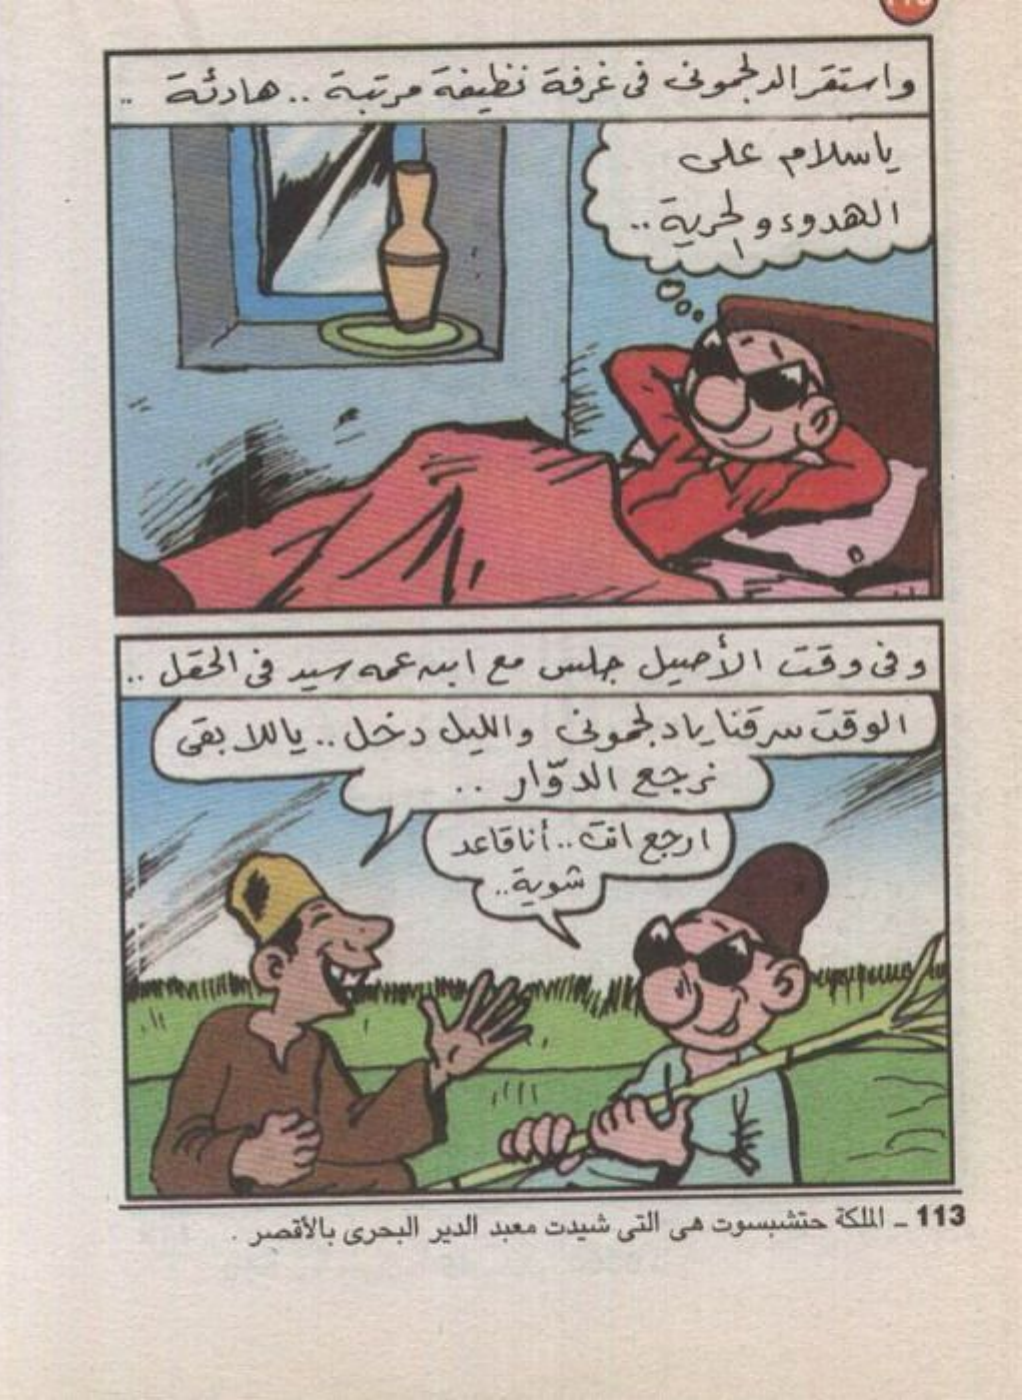 واستقر الدلجمونى فى غرفة نظيفة مرتبة .. هادئة ..
ياسلام على
الهدوء والحرية ..
وفى وقت الأصيل جلس مع ابن عمه سيد فى الحقل ..
الوقت سرقنا يا دلجمونى والليل دخل .. ياللا بقى
نرجع الدوّار ..
ارجع انت .. أنا قاعد
شوية ..
113 ـ الملكة حتشبسوت هى التى شيدت معبد الدير البحرى بالأقصر .